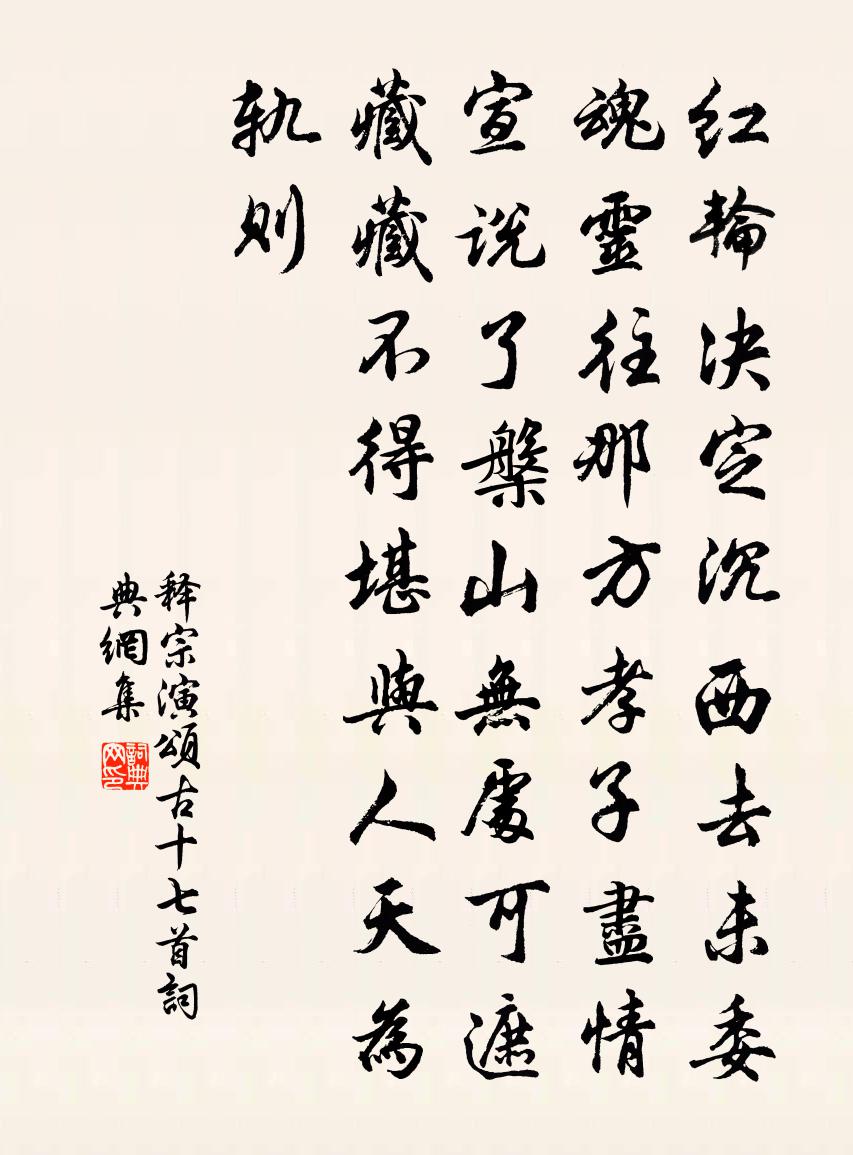 红輪决定沉西去未委
魂靈往那方孝子盡情
宣説了槃山無處可遮
藏藏不得堪與人天為
軌則
释宗演頌古十七首詞
典網集
詞典網印